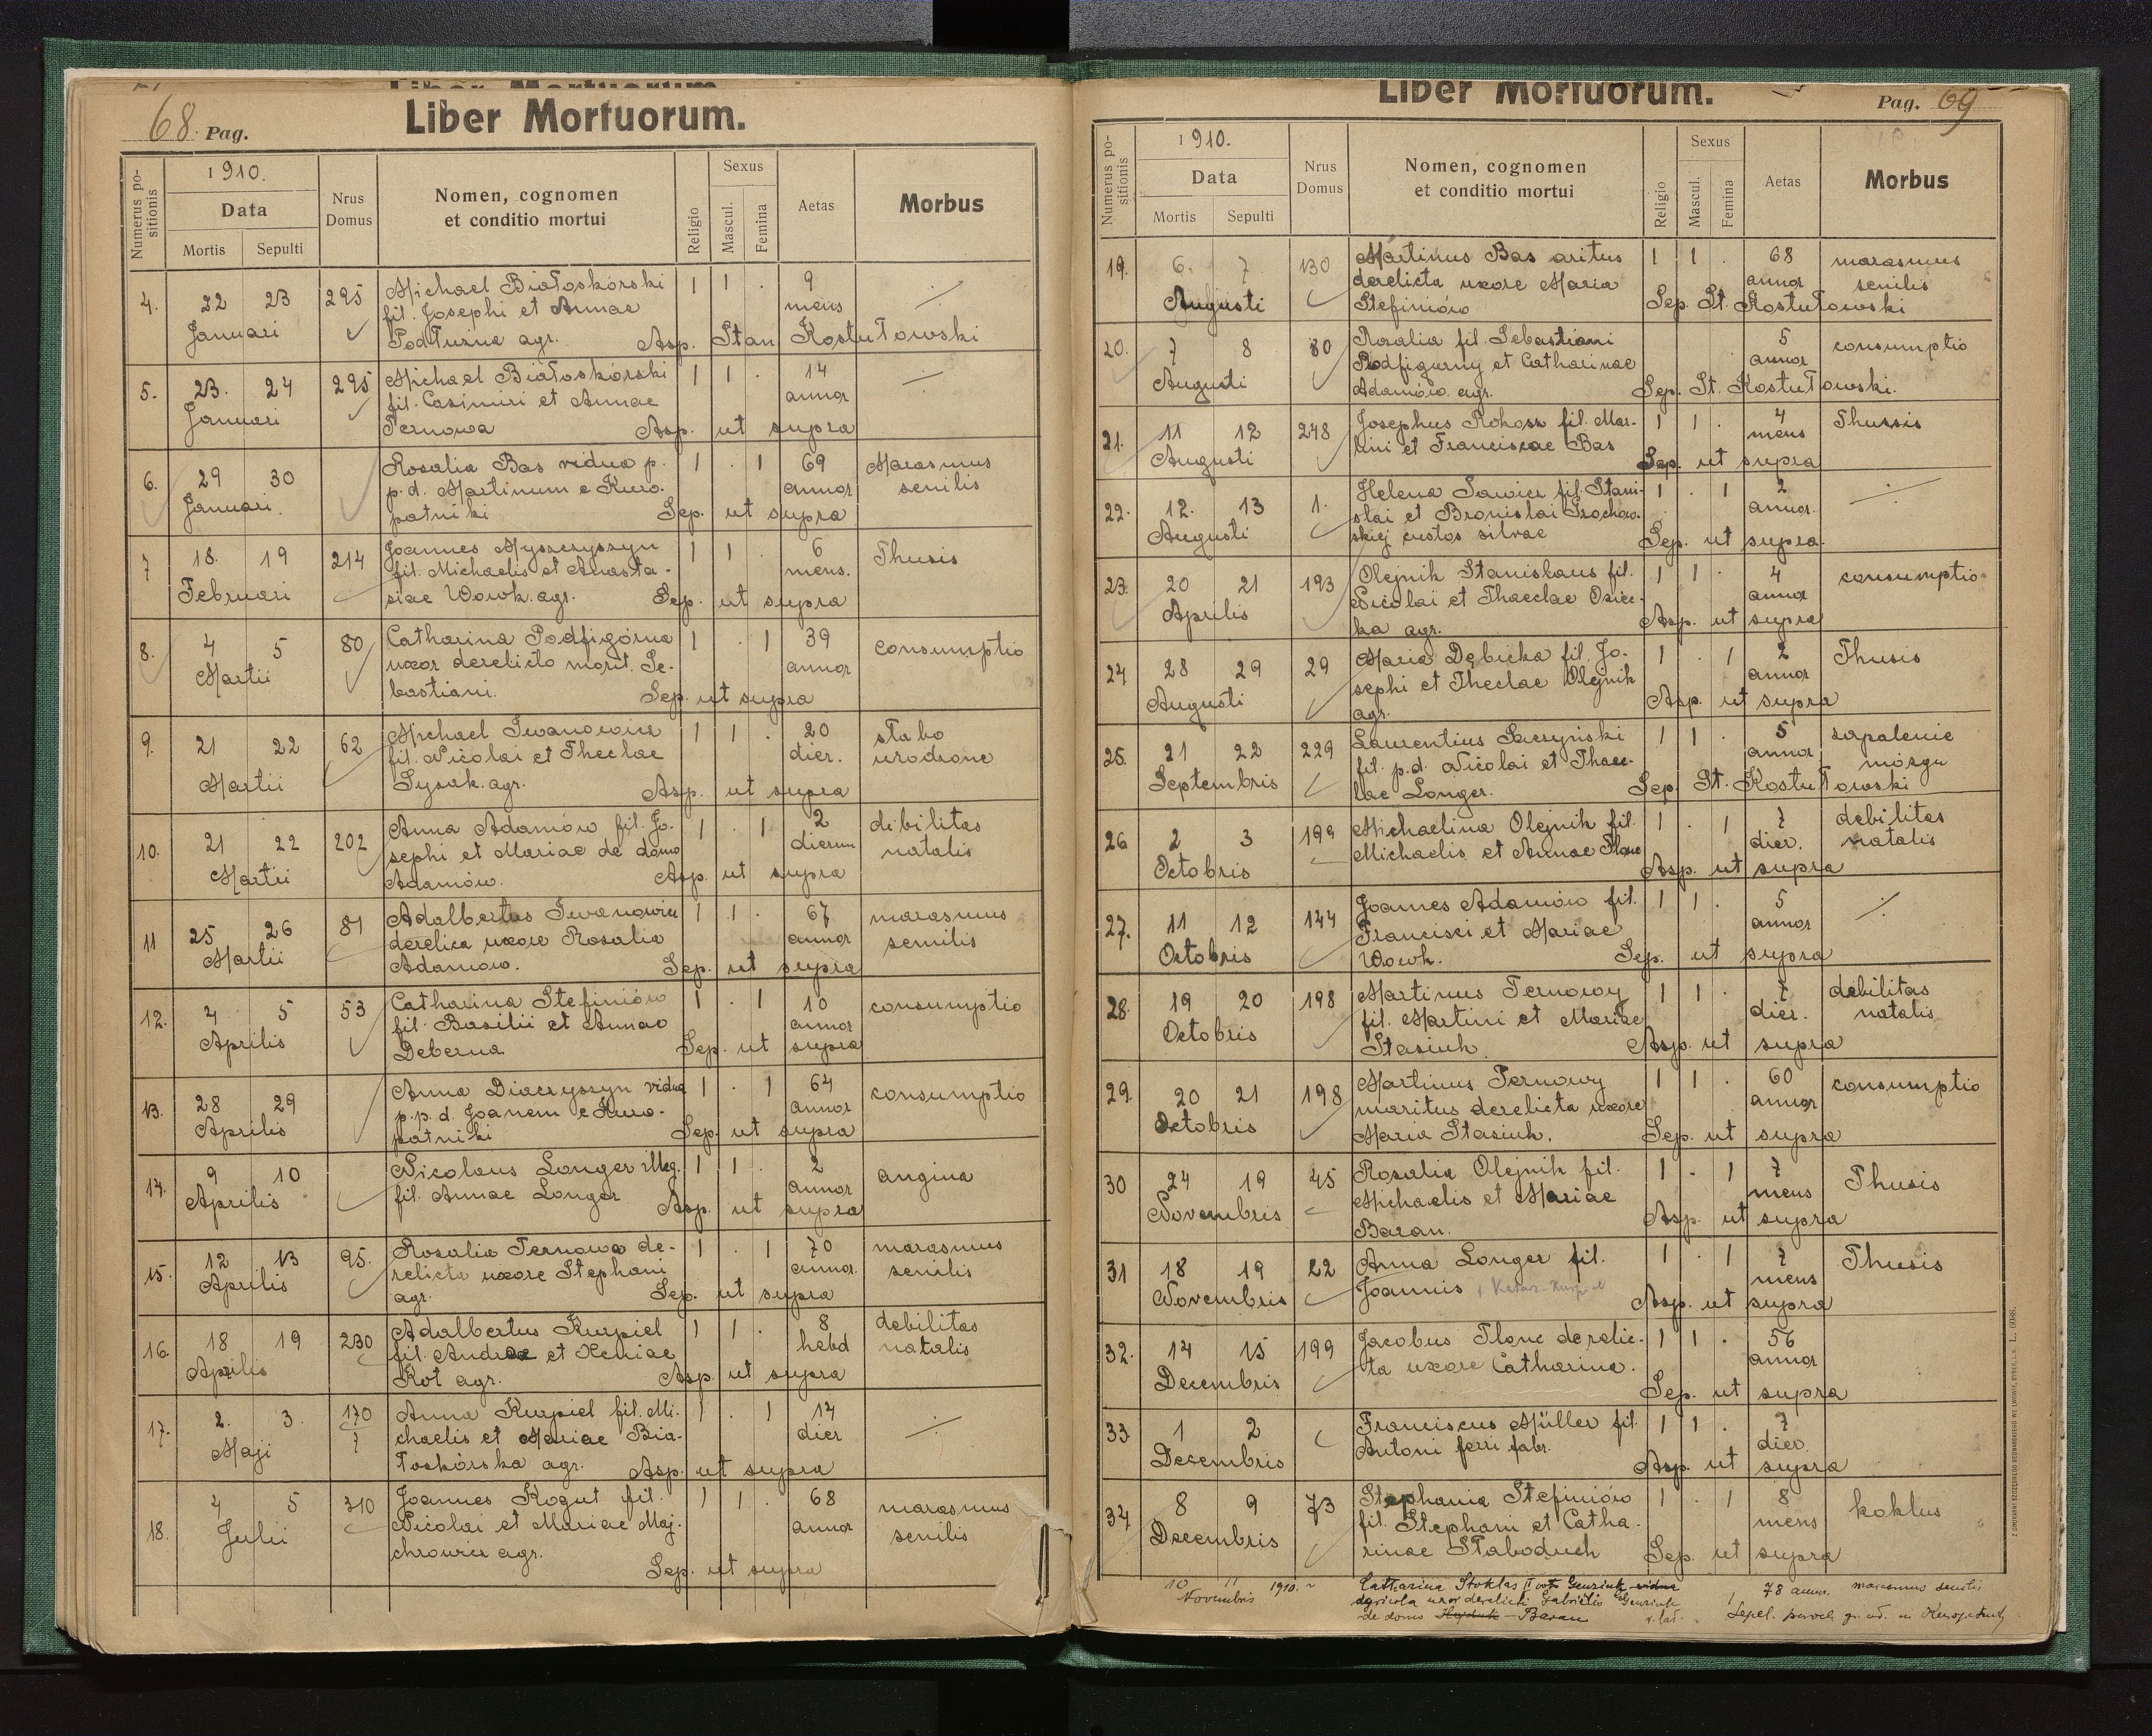 68. Pag.
Liber Mortuorum.
Numerus positionis
1910.
Data
Mortis Sepulti
Nrus Domus
Nomen, cognomen
et conditio mortui
Religio
Sexus
Mascul. Femina
Aetas
Morbus
4. 22 23 Januari 295 Michael Białoskórski 1 1 . 9 mens
fil. Josephi et Annae
Podłużna agr. Asp. Stan Kostułowski
5. 23. 24 Januari 295 Michael Białoskórski 1 1 . 14 annor
fil. Casimiri et Annae
Ternowa Asp. ut supra
6. 29 30 Januari. Rosalia Bas vidua p. 1 . 1 69 annor Marasmus senilis
p. d. Martinum e Kuro-
patniki Sep. ut supra
7 18. 19 Februari 214 Joannes Myszczyszyn 1 1 . 6 mens. Thusis
fil. Michaelis et Anasta-
siae Wowk. agr. Sep. ut supra
8. 4 5 Martii 80 Catharina Podfigórna 1 . 1 39 annor consumptio
uxor derelicto morit. Se-
bastiani. Sep. ut supra
9. 21 22 Martii 62 Michael Iwanowicz 1 1 . 20 dier. słabo urodzone
fil. Nicolai et Theclae
Łysak. agr. Asp. ut supra
10. 21 22 Martii 202 Anna Adamów fil. Jo- 1 . 1 2 dierum debilitas natalis
sephi et Mariae de domo
Adamów. Asp. ut supra
11 25 26 Martii 81 Adalbertus Iwanowicz 1 1 . 67 annor marasmus senilis
derelica uxore Rosalia
Adamów. Sep. ut supra
12. 4 5 Aprilis 53 Catharina Stefiniów 1 . 1 10 annor consumptio
fil. Basilii et Annae
Deberna Sep. ut supra
13. 28 29 Aprilis Anna Diaczyszyn vidua 1 . 1 64 annor consumptio
p. p. d. Joanem e Kuro-
patniki Sep. ut supra
14. 9 10 Aprilis Nicolaus Longer illeg. 1 1 . 2 annor angina
fil. Annae Longer Asp. ut supra
15. 12 13 Aprilis 95. Rosalia Ternowa de- 1 . 1 70 annor. marasmus senilis
relicta uxore Stephani
agr. Sep. ut supra
16. 18 19 Aprilis 230 Adalbertus Kurpiel 1 1 . 8 hebd debilitas natalis
fil. Andreae et Xeniae
Kot agr. Asp. ut supra
17. 2. 3. Maji 170 ? Anna Kurpiel fil. Mi- 1 . 1 14 dier
chaelis et Mariae Bia-
łoskórska agr. Asp. ut supra
18. 4 5 Julii 210 Joannes Kogut fil. 1 1 . 68 annor marasmus senilis
Nicolai et Mariae Maj-
chrowicz agr.
Sep. ut supra
Liber Mortuorum.
Pag. 69
Numerus positionis
1910.
Data
Mortis Sepulti
Nrus Domus
Nomen, cognomen
et conditio mortui
Religio
Sexus
Mascul. Femina
Aetas
Morbus
19. 6. 7. Augusti 130 Martinus Bas aritus 1 1 . 68 annor marasmus senilis
derelicta uxore Maria
Stefiniów Sep. St. Kostułowski
20. 7 8 Augusti 80 Rosalia fil. Sebastiani 5 annor consumptio
Podfigurny et Catharinae
Adamów. agr. Sep. St. Kostułowski.
21. 11 12 Augusti 248 Josephus Rokosz fil. Mar- 1 1 . 4 mens Thussis
tini et Franciscae Bas
Sep. ut supra
22. 12. 13 Augusti 1. Helena Sawicz fil. Stani- 1 . 1 2 annor.
slai et Bronislai Grochow-
skiej custos silvae Sep. ut supra.
23. 20 21 Aprilis 193 Olejnik Stanislaus fil. 1 1 . 4 annor consumptio
Nicolai et Thaeclae Osiec-
ka agr. Asp. ut supra
24 28 29 Augusti 29 Maria Dębicka fil. Jo- 1 . 1 2 annor Thusis
sephi et Theclae Olejnik
agr. Asp. ut supra
25. 21 22 Septembris 229 Laurentius 1 1 . 5 annor zapalenie mózgu
fil. p.d. Nicolai et Thaec-
lae Longer. Sep. St. Kostułowski
26 2 3 Octobris 199 Michaelina Olejnik fil. 1 . 1 7 dier. debilitas natalis
Michaelis et Annae Tlonc
Asp. ut supra
27. 11 12 Octobris 144 Joannes Adamów fil. 1 1 . 5 annor
Francisci et Mariae
Wowk. Sep. ut supra
28. 19 20 Octobris 198 Martinus Ternowy 1 1 . 7 dier. debilitas natalis
fil. Martini et Mariae
Stasiuk. Asp. ut supra
29. 20 21 Octobris 198 Martinus Ternowy 1 1 . 60 annor consumptio
maritus derelicta uxore
Maria Stasiuk. Sep. ut supra
30 24 19 Novembris 45 Rosalia Olejnik fil. 1 . 1 7 mens Thusis
Michaelis et Mariae
Baran. Asp. ut supra
31 18 19 Novembris 22 Anna Longer fil. 1 . 1 7 mens Thusis
Joannis
Asp. ut supra
32. 14 15 Decembris 199 Jacobus Tlonc derelic- 1 1 . 56 annor
ta uxore Catharina.
Sep. ut supra
33. 1 2 Decembris Franciscus Müller fil. 1 1 . 7 dier.
Antoni ferri fabr.
Asp. ut supra
34. 8 9 Decembris 73 Stephania Stefiniów 1 . 1 8 mens koklus
fil. Stephani et Catha-
rinae Słaboduch Sep. ut supra
10 11 1910. Novembris Catharina Stoklas II vot Genzink vidua 78 annor. marasmus senilis
agricola uxor derelicti Gabrielis Genzink 1
de domo Hajduk - Baran r. lat. Sepel. paroch. gr.